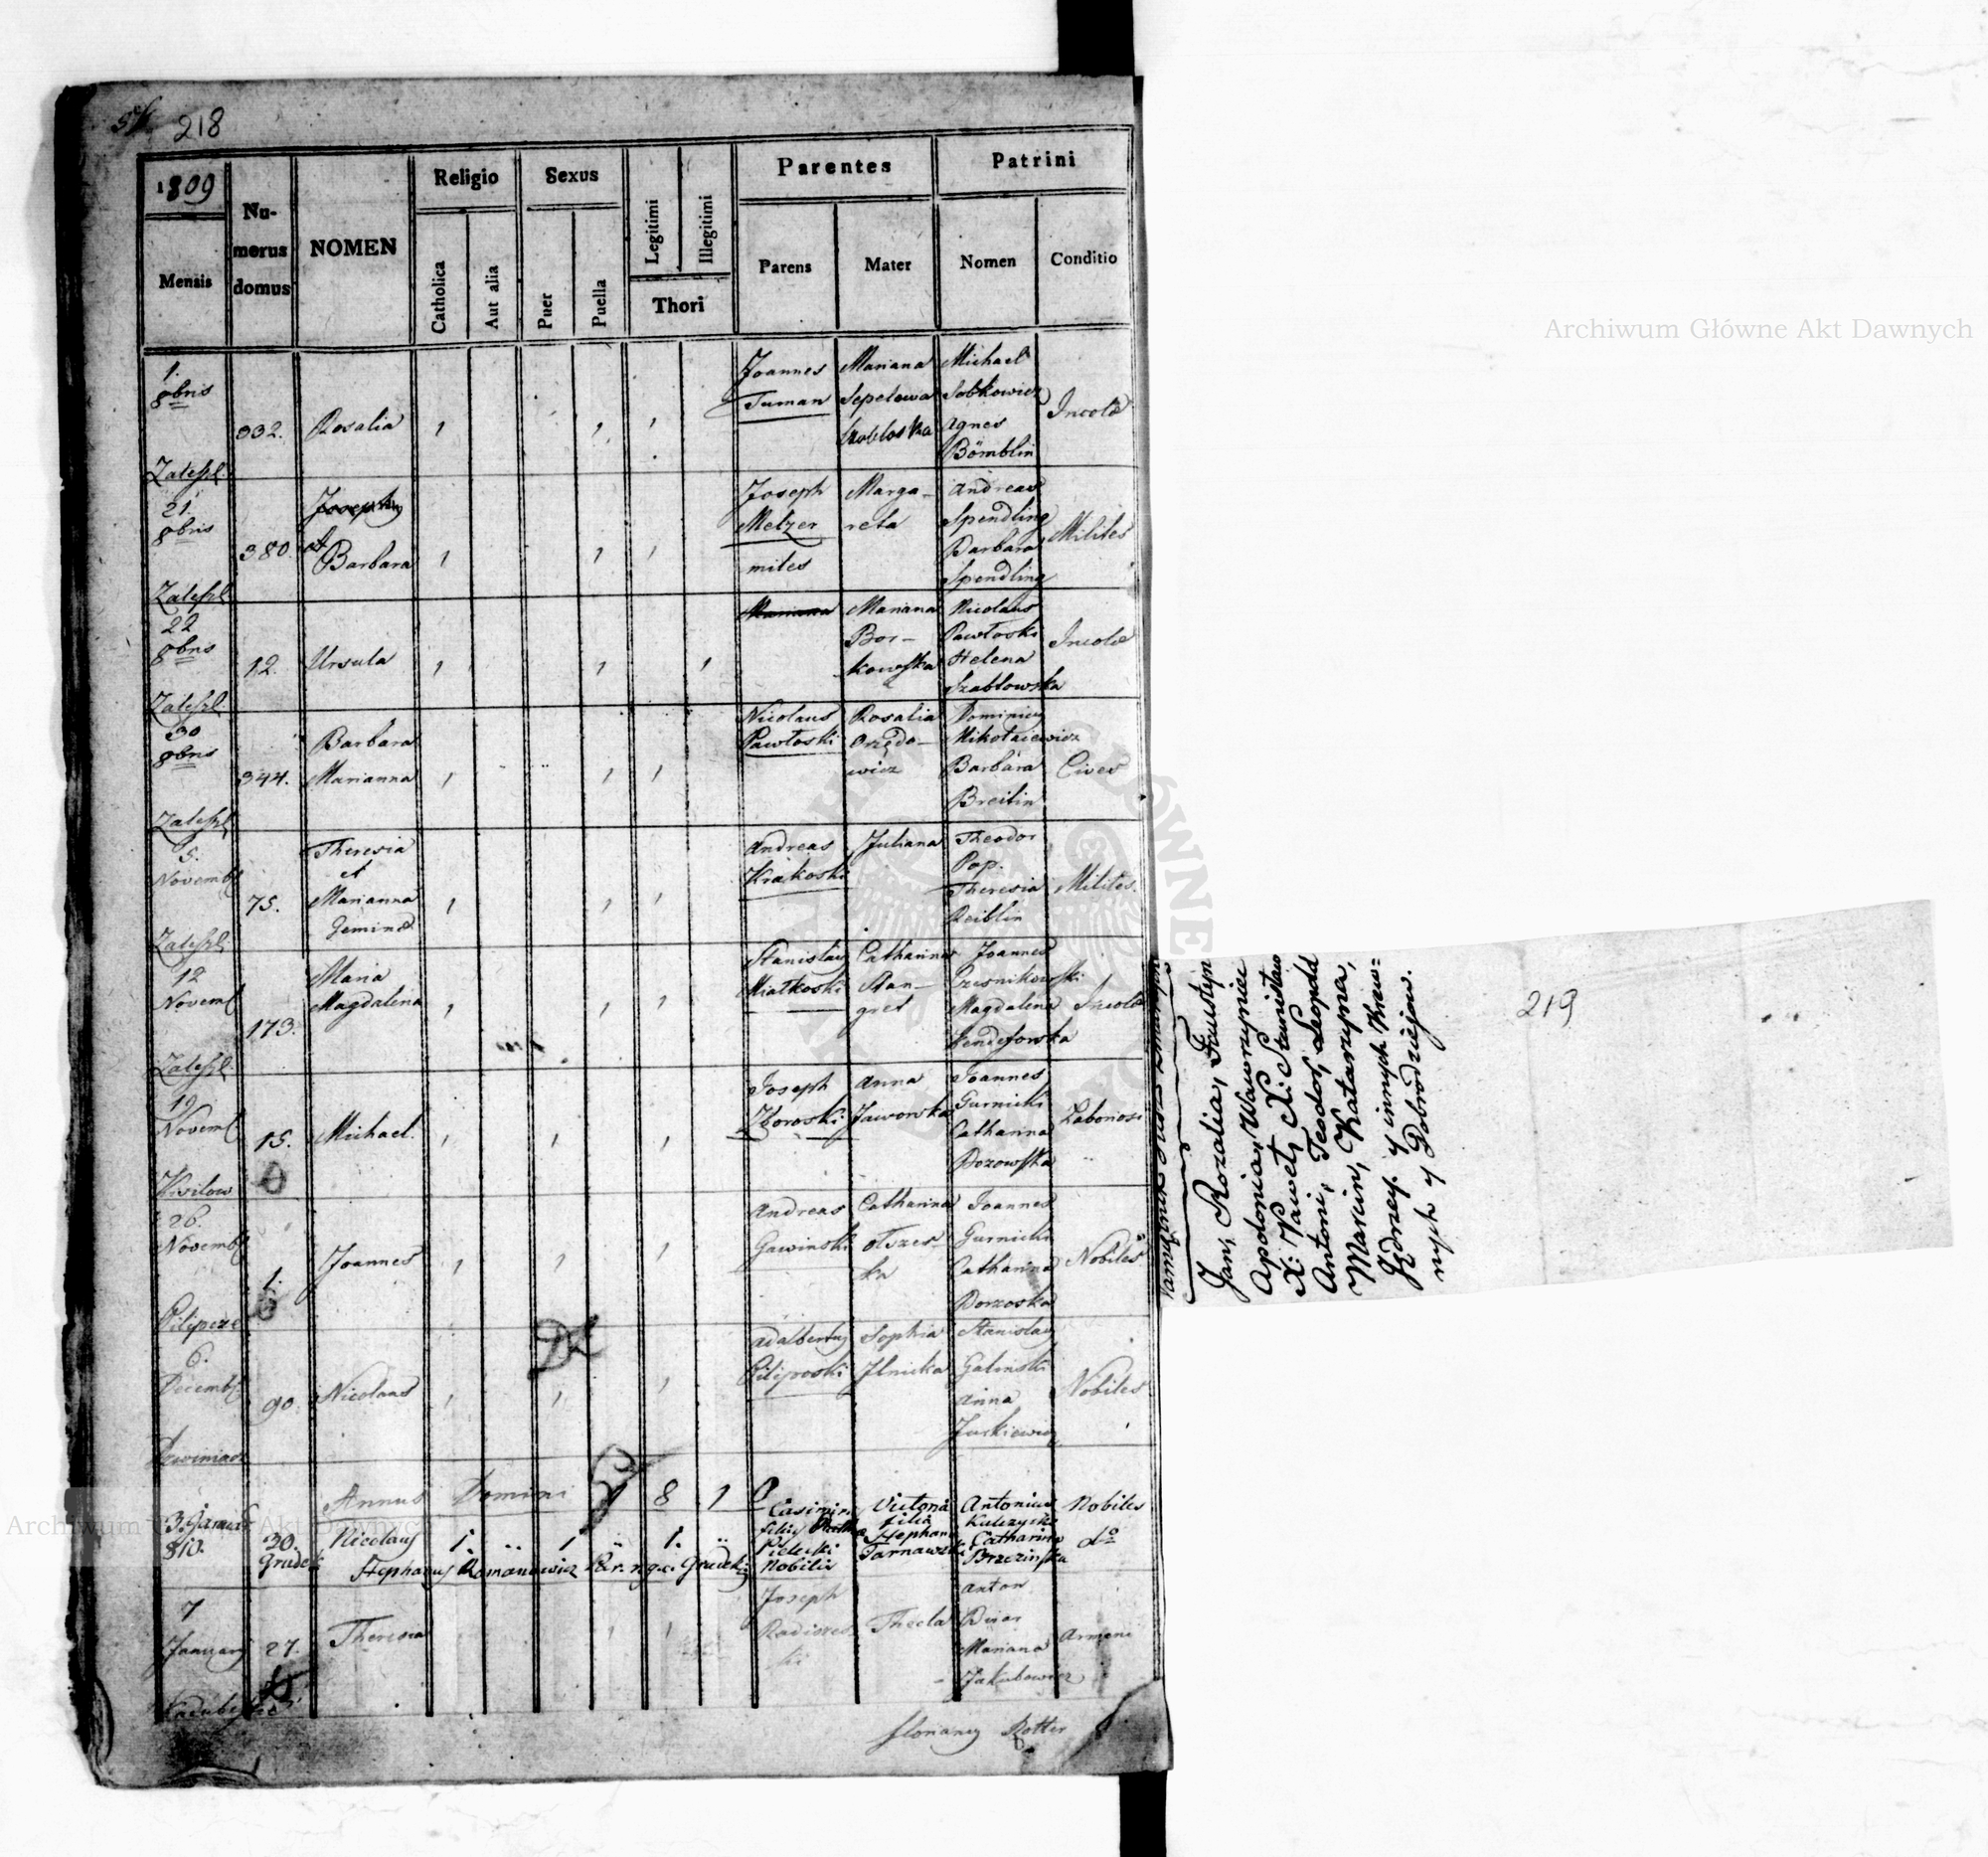 218
1809
Mensis
Numerus domus
NOMEN
Religio
Catholica
Aut alia
Sexus
Puer
Puella
Legitimi
Illegitimi
Thori
Parentes
Parens
Mater
Patrini
Nomen
Conditio
1. 8bris
Zaleszl.
332.
Rosalia
1 1 1
Joannes
Tuman
Mariana
Sepelowa
Michael
Sobkowicz
Agnes
Bömblin
Incolae
21. 8bris
Zaleszl.
380.
et
Barbara
1 1 1
Joseph
Melzer
miles
Marga-
reta
Andreas
Spendling
Barbara
Spendling
Milites
22 8bris
Zaleszl.
12.
Ursula
1 1 1
Mariana
Mariana
Bor-
kowska
Nicolaus
Pawłoski
Helena
Szabłowska
Incolae
30 8bris
Zaleszl.
344.
Barbara
Marianna
1 1 1
Nicolaus
Pawłoski
Rosalia
Orzędo-
wicz
Dominicus
Mikołaiewicz
Barbara
Breitin
Cives
5. Novemb
Zaleszl.
75.
Theresia
et
Marianna
Geminae
1 1 1
Andreas
Krakoski
Juliana
Theodor
Pop.
Theresia
Reiblin
Milites.
12 Novemb
Zaleszl.
173.
Maria
Magdalena
1 1 1
Stanislaus
Miatkoski
Catharina
Stan-
gret
Joannes
Magdalena
Incolae
19 Novemb
15.
Michael.
1 1 1
Joseph
Zboroski
Anna
Jaworska
Joannes
Gurnicki
Catharina
Borowska
Laboriosi
26. Novemb
Pilipcze
1.
Joannes
1 1 1
Andreas
Gawinski
Catharina
Olszes-
ka
Joannes
Gurnicki
Catharina
Borzoska
Nobiles
6. Decembr
Dzwiniacz
90.
Nicolaus
1 1 1
Adalbertus
Piliposki
Sophia
Jlnicka
Stanislaus
Galinski
Anna
Jurkiewicz
Nobiles
Annus Domini 1 8 1 0
3 Januar
810.
30.
Grudek
Nicolaus
1. 1 1.
Casimir
filius
Pielecki
Nobilis
Victoria
filia
Stephani
Tarnawski
Antonius
Kulczycki
Catharina
Brzezinska
Nobiles
do
Stephanus Romanowicz Par. r. g. c. Grudeki
7
January
27.
Theresia
1 1
Joseph
Thecla
Anton
Mariana
Jakubowicz
Armeni
Florianus Rotter
Jan, Rozalia, Faustyn
Apolonia, Wawrzyniec
X: Paweł, X: Stanisław
Antoni, Teodor, Leopold
Marcin, Katarzyna,
Jędrzej. y innych Krew=
nych y Dobrodziejow.
219
Archiwum Główne Akt Dawnych
Archiwum Główne Akt Dawnych